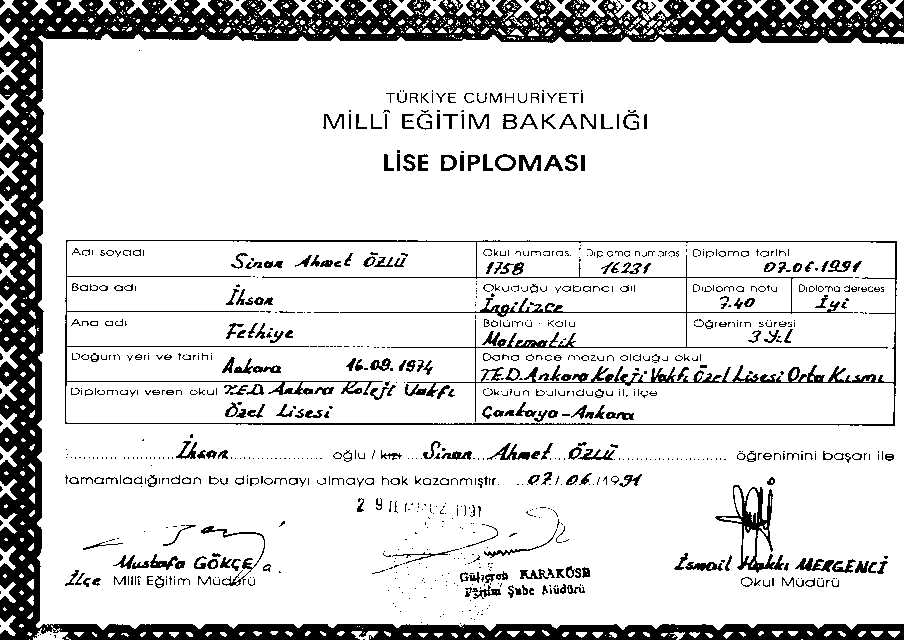 TÜRKİYE CUMHURİYETİ
MİLLÎ EĞİTİM BAKANLIĞI
LİSE DİPLOMASI
Adı soyadı Sinan Ahmet ÖZLÜ Okul numarası 1758 Diploma numarası 16231 Diploma tarihi 07.06.1991
Baba adı İhsan Okuduğu yabancı dil İngilizce Diploma notu 7.40 Diploma derecesi İyi
Ana adı Fethiye Bölümü - Kolu Matematik Öğrenim süresi 3 Yıl
Doğum yeri ve tarihi Ankara 16.09.1974 Daha önce mezun olduğu okul T.E.D. Ankara Koleji Vakfı Özel Lisesi Orta Kısmı
Diplomayı veren okul T.E.D. Ankara Koleji Vakfı Özel Lisesi Okulun bulunduğu il, ilçe Çankaya-Ankara
İhsan oğlu / kızı Sinan Ahmet ÖZLÜ öğrenimini başarı ile
tamamladığından bu diplomayı almaya hak kazanmıştır. 07/06/1991
29 TEMMUZ 1991
Mustafa GÖKÇE
İlçe Millî Eğitim Müdürü
KARAKÖSE
Eğitim Şube Müdürü
İsmail Hakkı MERGENCİ
Okul Müdürü